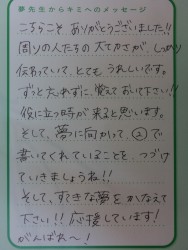 夢先生からキミへのメッセージ
こちらこそ、ありがとうございました!!
周りの人たちの大切さが、しっかり
伝わっていて、とても、うれしいです。
ずっと忘れずに、覚えておいて下さい!!
役に立つ時が来ると思います。
そして、夢に向かって、②で
書いてくれていることを、つづけて
いきましょうね!!
そして、すてきな夢をかなえて
下さい!!応援しています!
がんばれ〜!